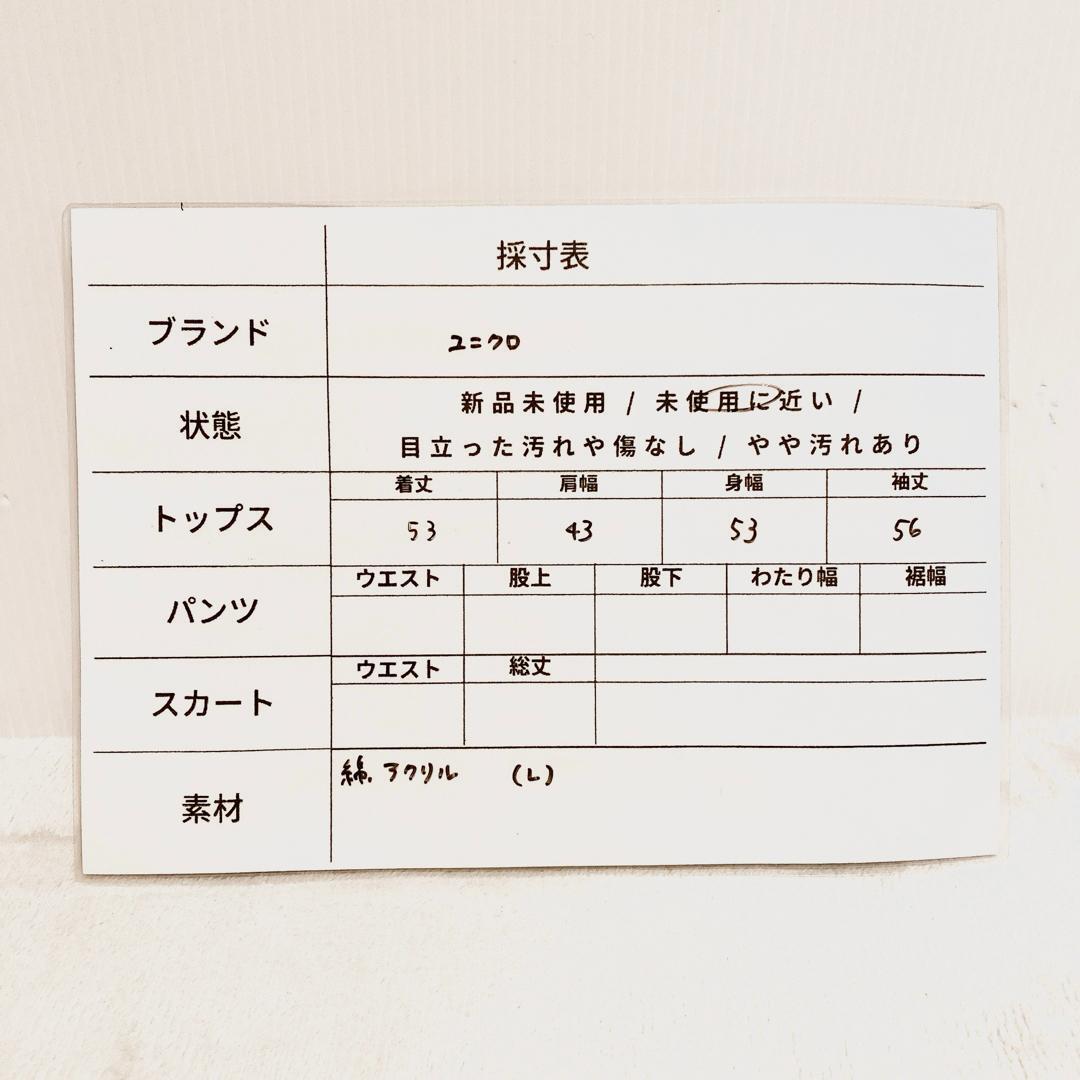 採寸表
ブランド ユニクロ
状態 新品未使用 / 未使用に近い /
目立った汚れや傷なし / やや汚れあり
トップス 着丈 肩幅 身幅 袖丈
53 43 53 56
パンツ ウエスト 股上 股下 わたり幅 裾幅
スカート ウエスト 総丈
素材 綿、アクリル (L)